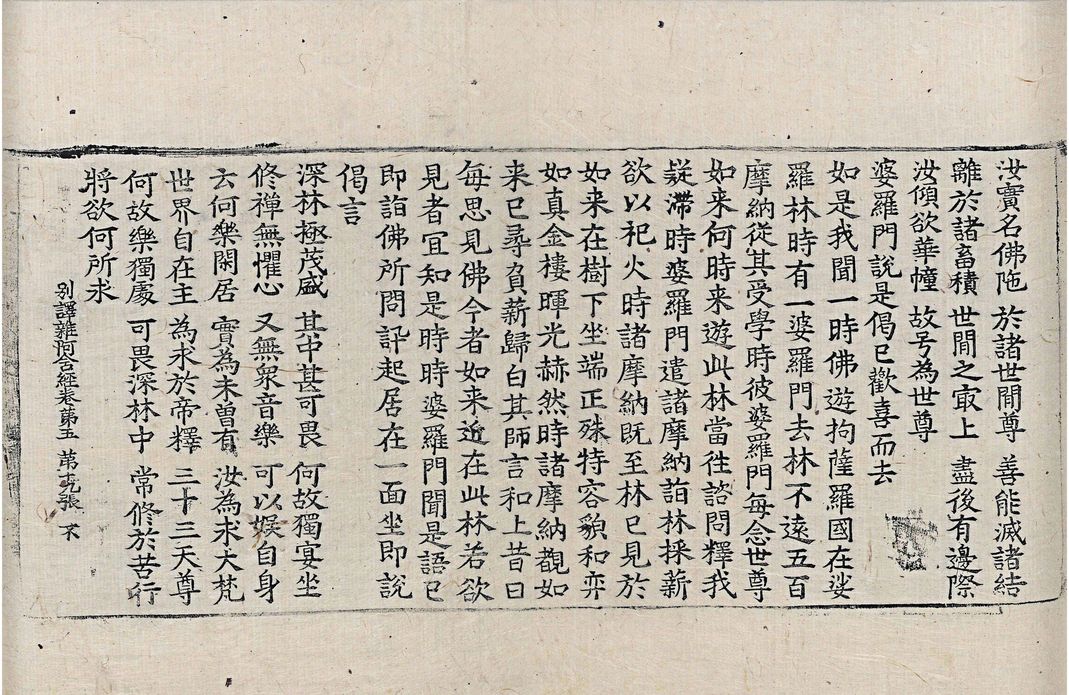 汝實名佛陁 於諸世間尊 善能滅諸結
離於諸畜積 世間之㝡上 盡後有邊際
汝傾欲華幢 故号為世尊
婆羅門說是偈已歡喜而去
如是我聞一時佛遊拘薩羅國在娑
羅林時有一婆羅門去林不遠五百
摩納從其受學時彼婆羅門每念世尊
如來何時来遊此林當徃諮問釋我
疑滯時婆羅門遣諸摩納詣林採薪
欲以祀火時諸摩納既至林已見於
如来在樹下坐端正殊特容皃和弈
如真金樓暉光赫然時諸摩納覩如
来已尋負薪歸白其師言和上昔日
每思見佛今者如来近在此林若欲
見者宜知是時時婆羅門聞是語已
即詣佛所問訊起居在一面坐即說
偈言
深林極茂盛 其中甚可畏 何故獨宴坐
修禪無懼心 又無衆音樂 可以娛自身
云何樂閑居 實為未曾有 汝為求大梵
世界自在主 為求於帝釋 三十三天尊
何故樂獨處 可畏深林中 常修於苦行
將欲何所求
别譯雜阿含經卷第五 第十九張 不